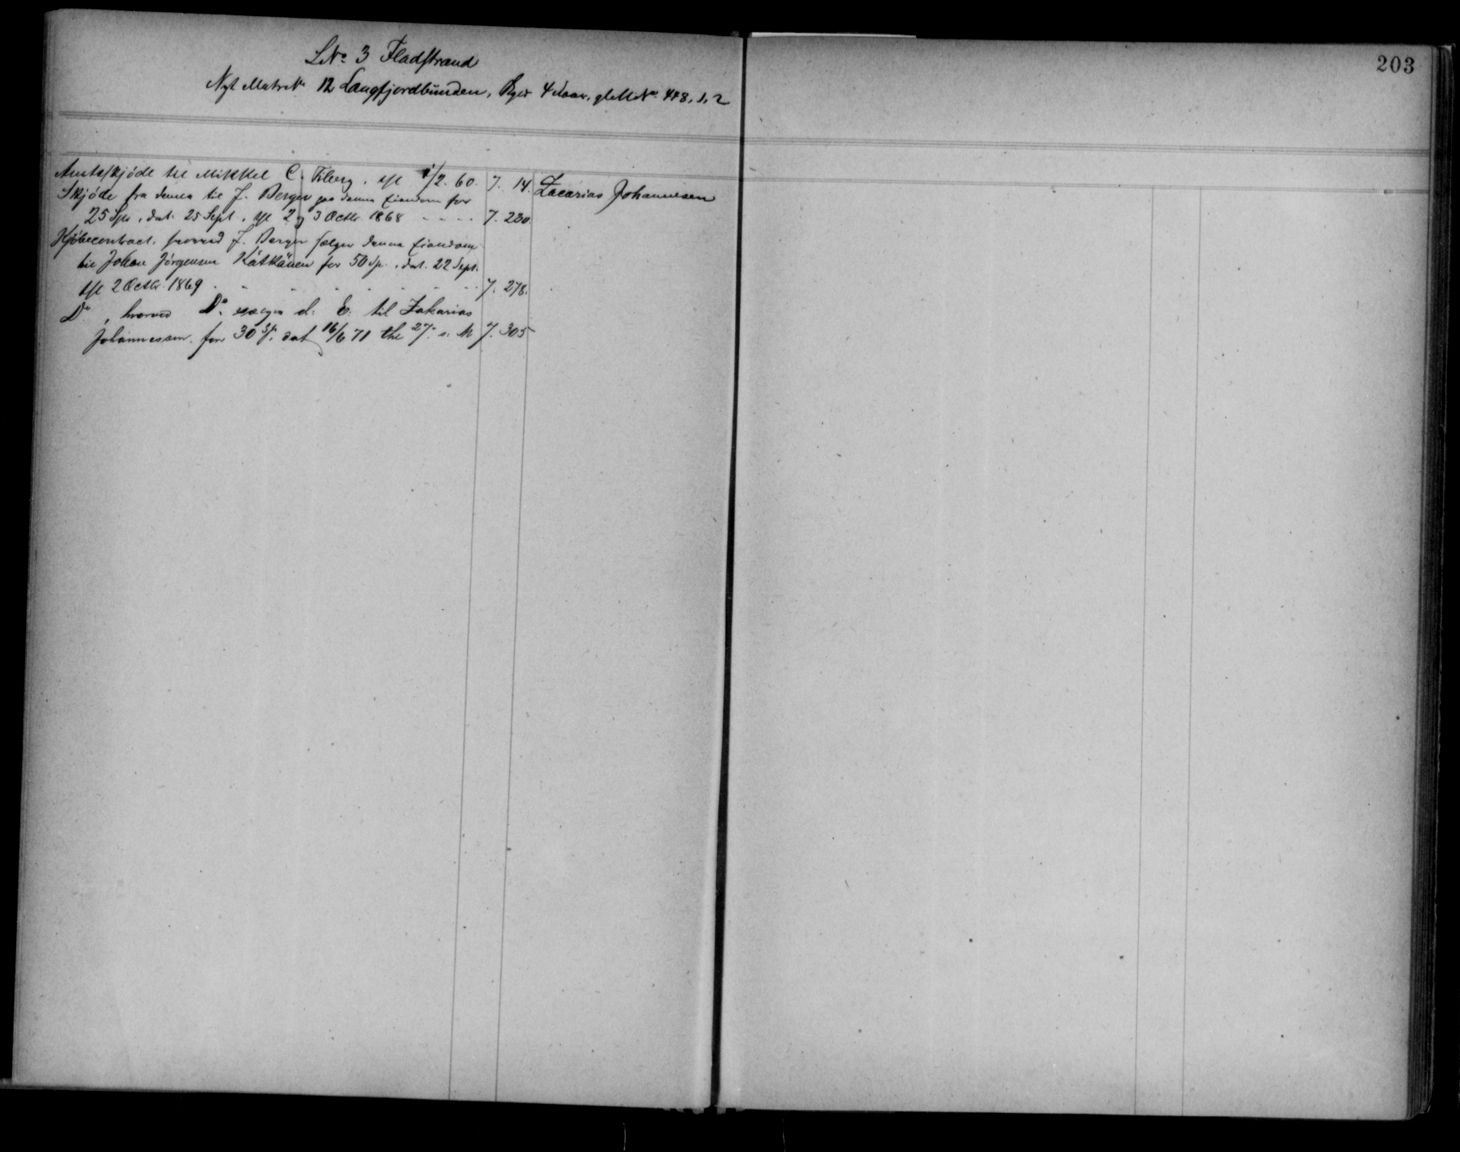 203
LNo 3 Fladstrand
Nyt MatrNo 12 Langfjordbunden, 4 glMNo 448, 1, 2
Amtsskjöde til Mikkel C. Friberg, thl 1/2. 60. 7. 14. Zacarias Johannesen
Skjöde fra denne til J. Berger paa denne Eiendom for
25 Spd., dat. 25 Sept, thl 2 og 3 Octbr 1868 - - - - 7. 220.
Kjöbecontract, hvorved J. Berger sælger denne Eiendom
til Johan Jörgensen Kätkäinen for 50 Sp., dat. 22 Sept.
thl 2 Octbr 1869 - - - - - - - 7. 278.
Do, hvorved Do sælger d. E. til Zakarias
Johannessen for 30 Sp. dat 16/6 71 thl 27. s. M 7. 305